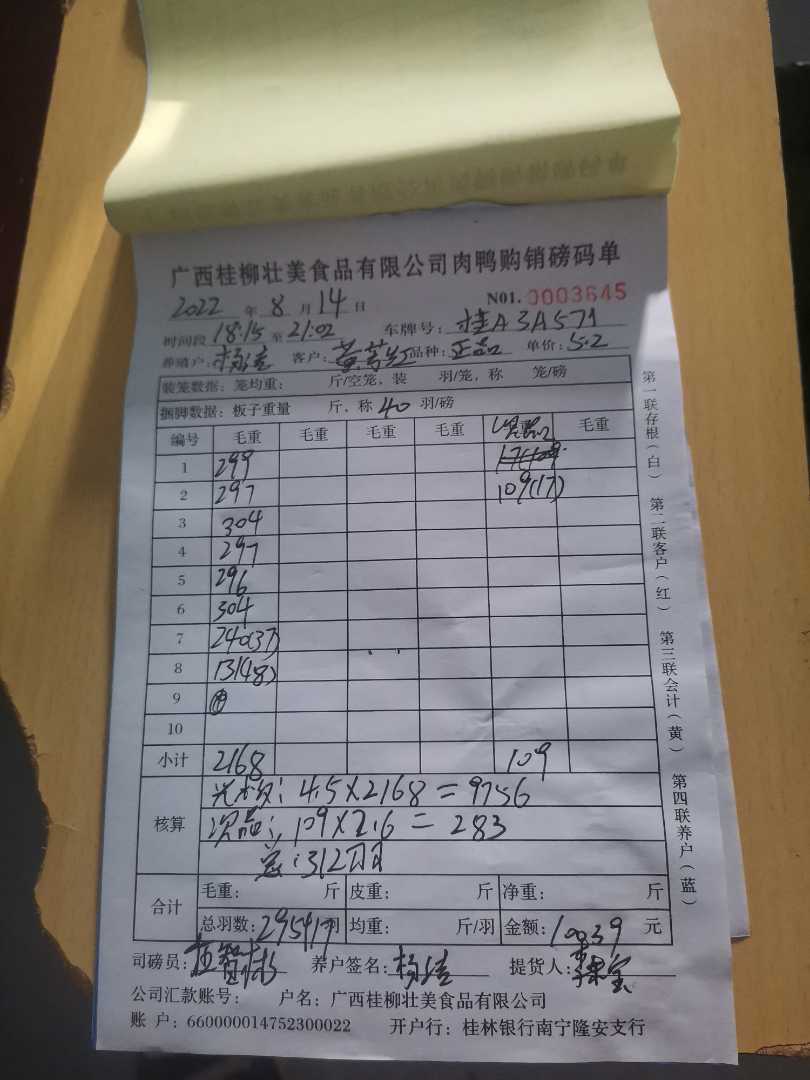 广西桂柳壮美食品有限公司肉鸭购销磅码单
2022 年 8 月 14 日 N01. 0003645
时间段 18:15 至 21:02 车牌号: 桂A3A571
养殖户: 杨洁 客户: 黄 品种: 正品 单价: 5.2
装笼数据: 笼均重: 斤/空笼, 装 羽/笼, 称 笼/磅
捆脚数据: 板子重量 斤, 称 40 羽/磅
编号 毛重 毛重 毛重 毛重 毛重
1 299
2 297 109(17)
3 304
4 297
5 296
6 304
7 240(37)
8 131(48)
9
10
小计 2168 109
核算 : 4.5×2168=9756
次品: 109×2.6=283
总: 312羽
合计 毛重: 斤 皮重: 斤 净重: 斤
总羽数: 295+17 羽 均重: 斤/羽 金额: 10039 元
司磅员: 养户签名: 杨洁 提货人:
公司汇款账号: 户名: 广西桂柳壮美食品有限公司
账 户: 660000014752300022 开户行: 桂林银行南宁隆安支行
第一联存根(白) 第二联客户(红) 第三联会计(黄) 第四联养户(蓝)